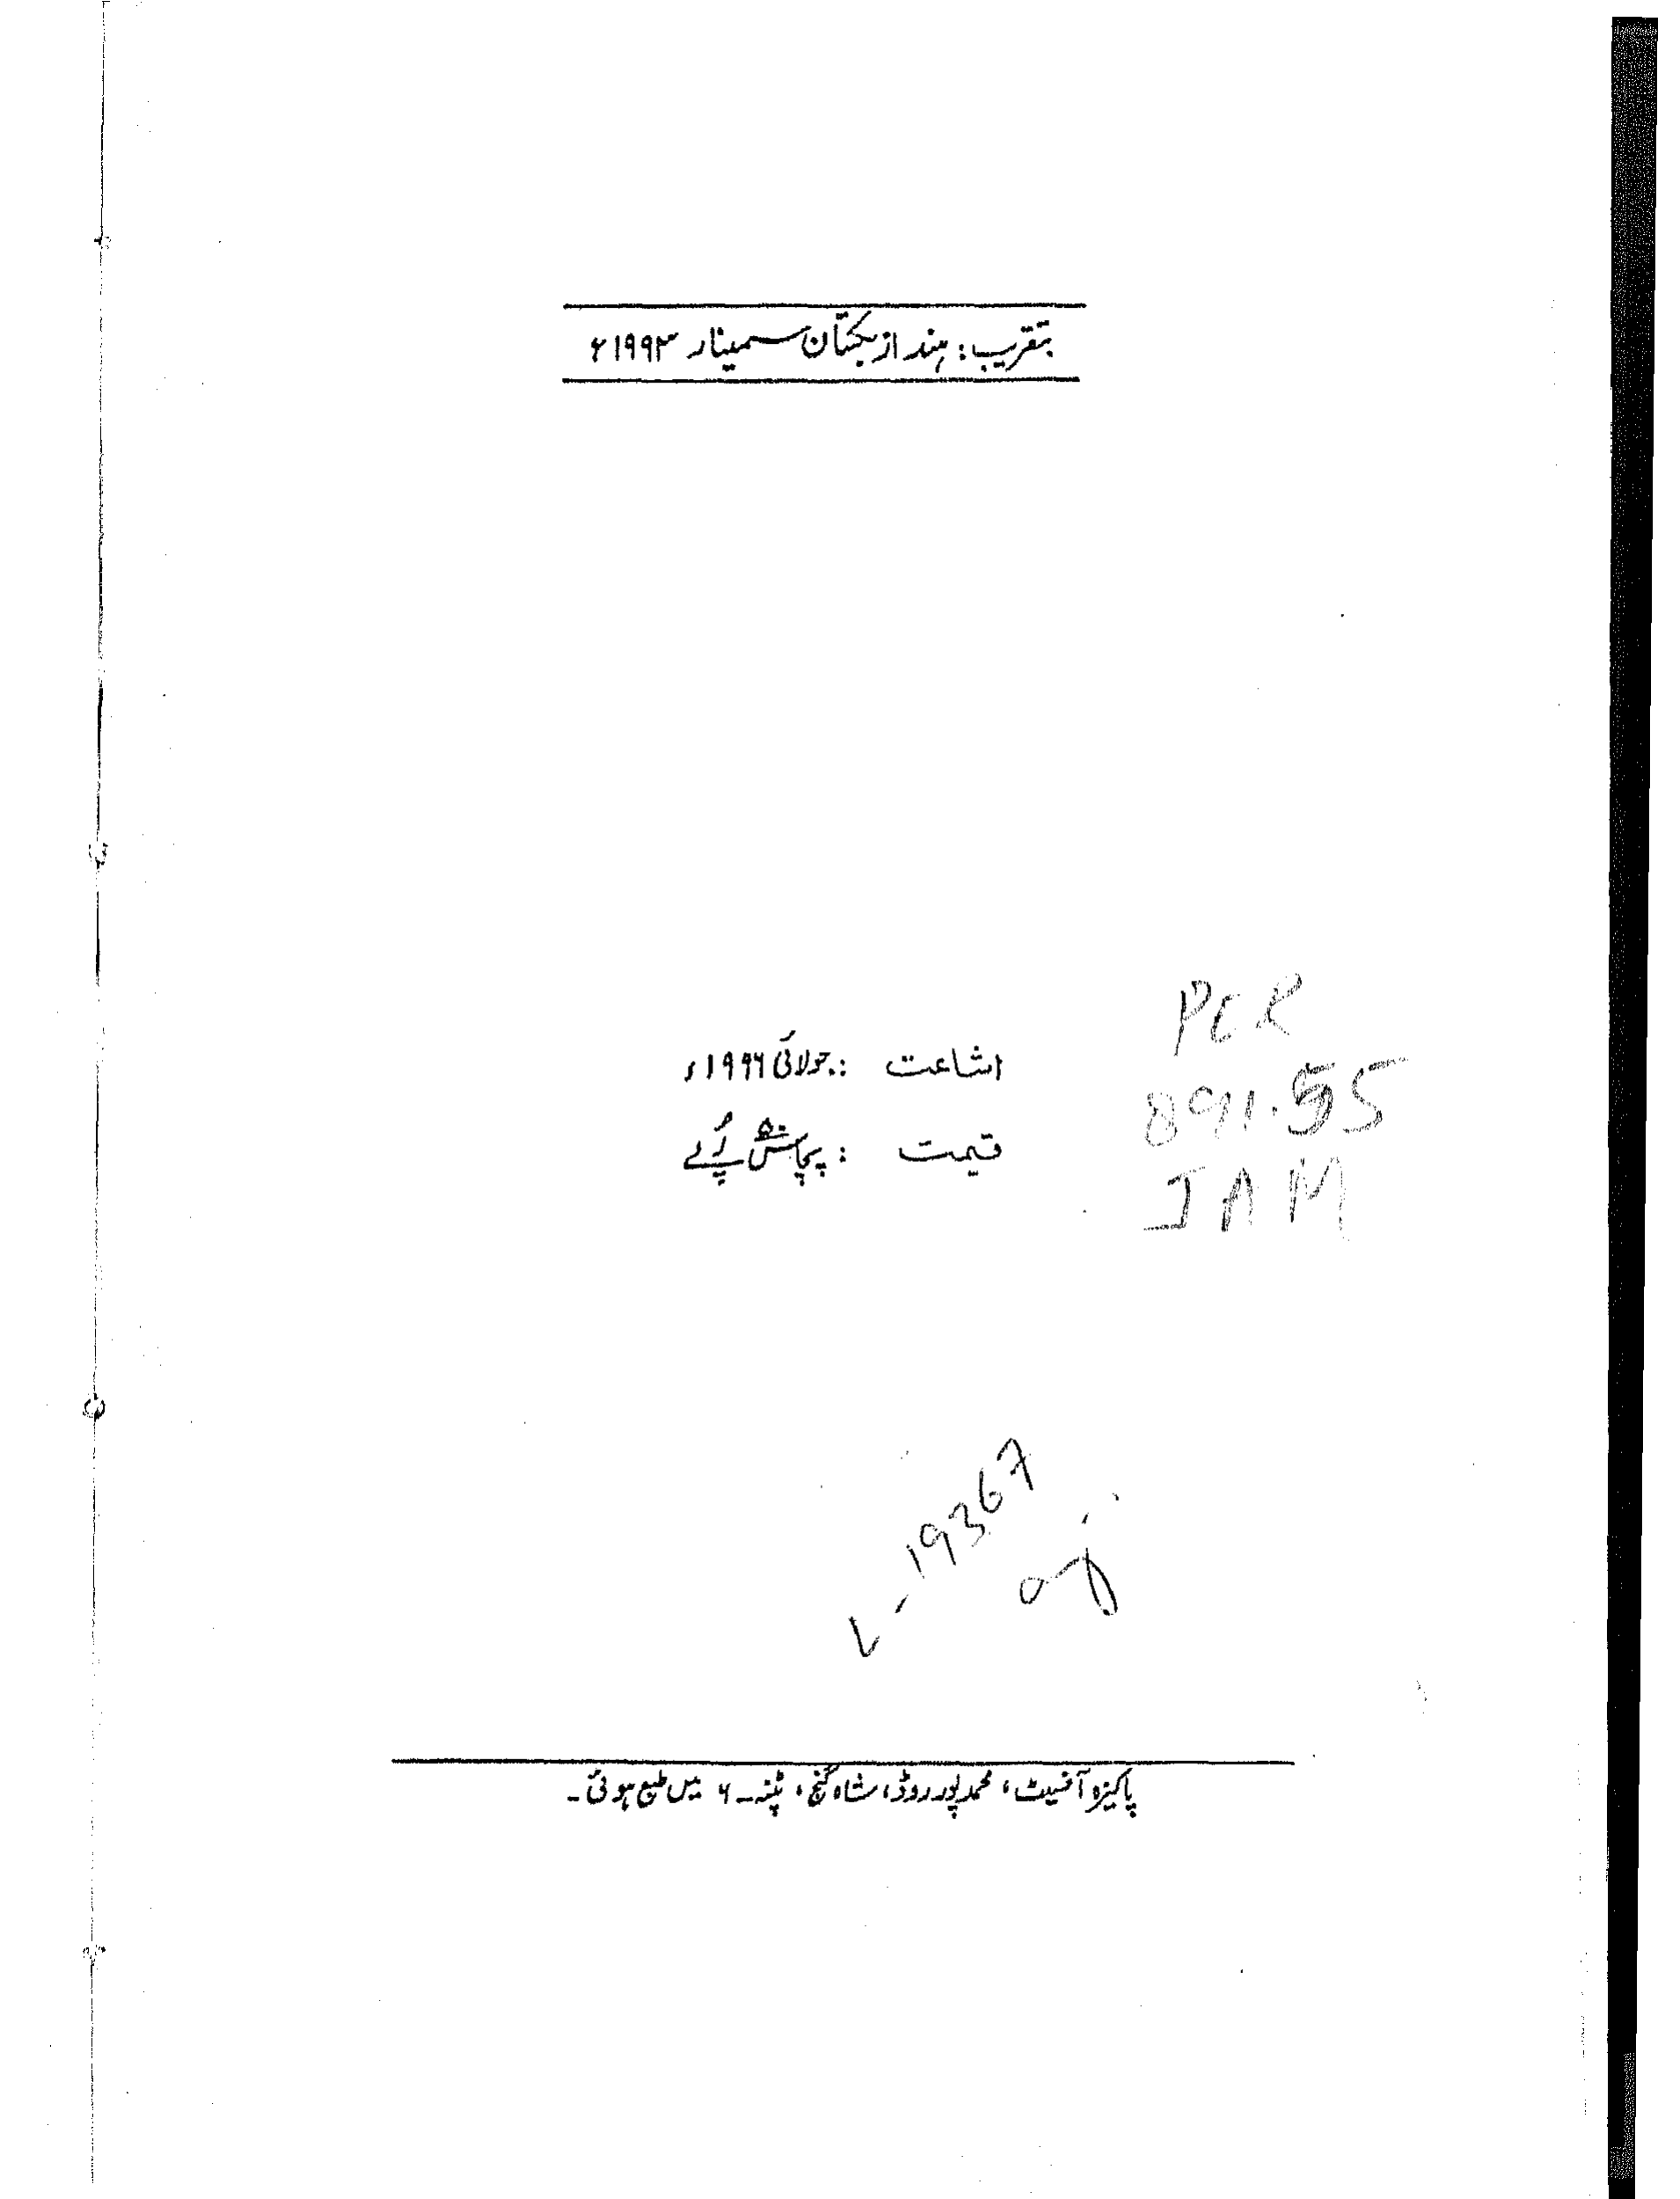 بتقریب: ہند ازبکستان سمینار ۱۹۹۳ء
اشاعت : جولائی ۱۹۹۶ء
قیمت : پچاس ۵۰ روپے
PER
891.55
JAM
L-19367
پاکیزہ آفسیٹ، محمد پور روڈ، شاہ گنج، پٹنہ ـ ۶ میں طبع ہوئی ـ